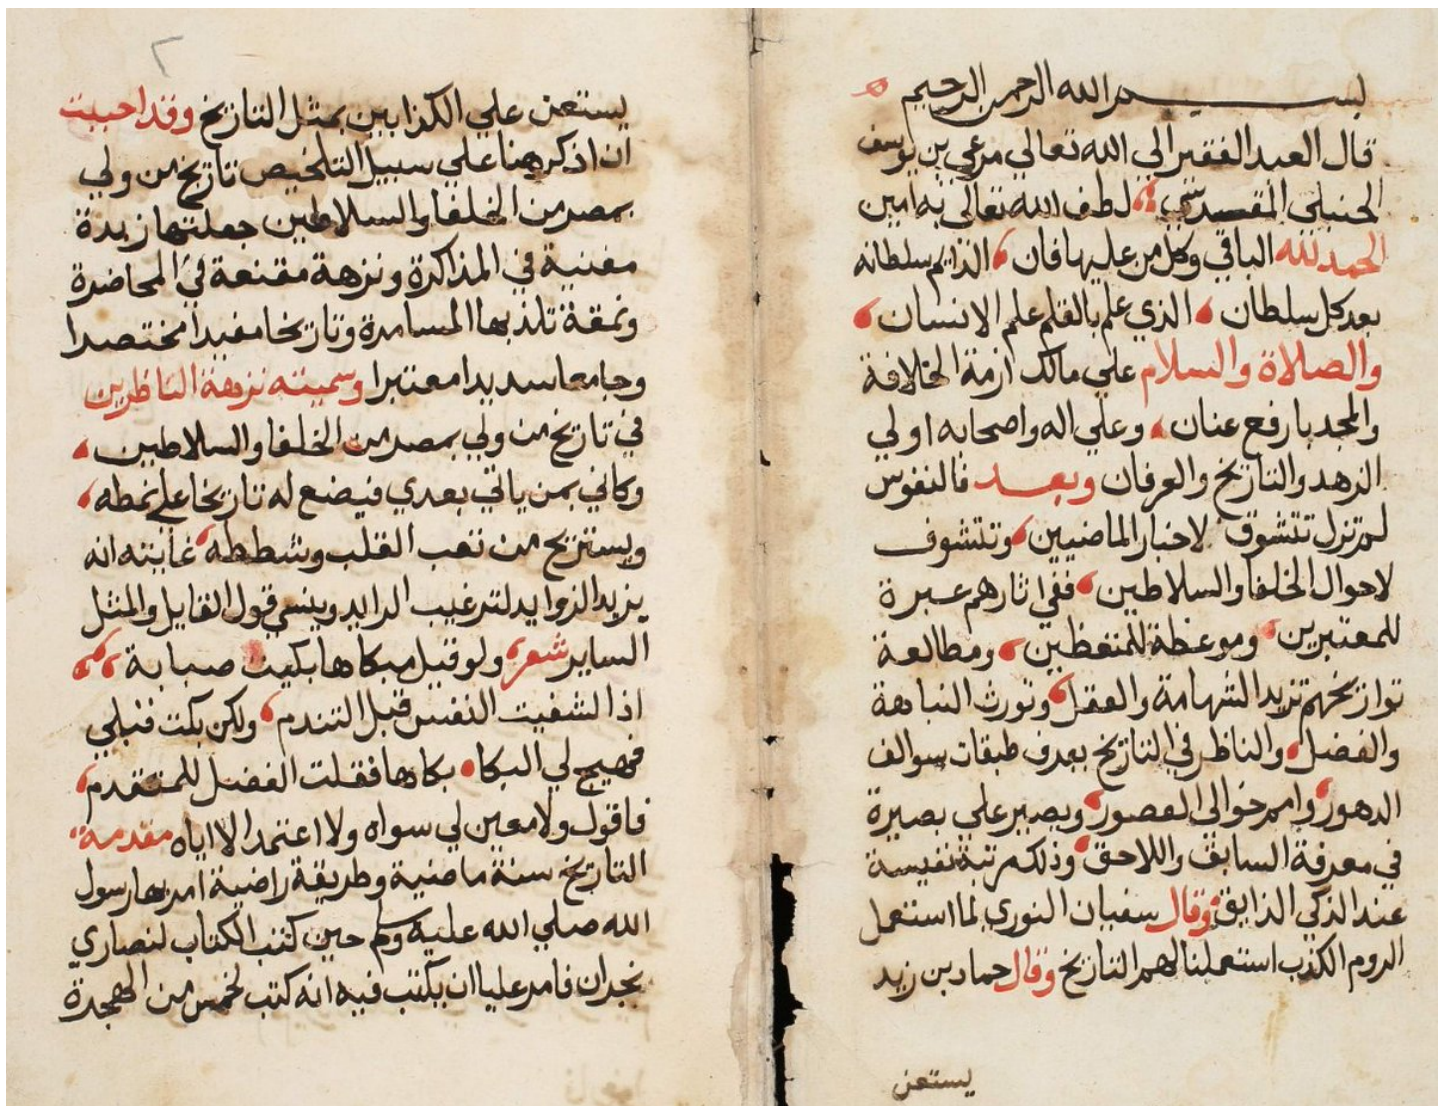 بسم الله الرحمن الرحيم
قال العبد الفقير الي الله تعالي مرعي بن يوسف
الحنبلي المقدسي لطف الله تعالي به امين
الحمد لله الباقي وكل من عليها فان الدايم سلطانه
بعد كل سلطان الذي علم بالقلم علم الانسان
والصلاة والسلام علي مالك ازمة الخلافة
والمجد بارفع عنان وعلي اله واصحابه اولي
الزهد والتاريخ والعرفان وبعد فالنفوس
لم تزل تتشوق لاخبار الماضيين وتتشوف
لاحوال الخلفا والسلاطين ففي اثارهم عبرة
للمعتبرين وموعظة للمتعظين ومطالعة
تواريخهم تزيد الشهامة والعقل وتورث النباهة
والفضل والناظر في التاريخ يعرف طبقات سوالف
الدهور وامر خوالي العصور ويصير علي بصيرة
في معرفة السابق واللاحق وذلك مرتبة نفيسة
عند الذكي الذايق وقال سفيان الثوري لما استعمل
الروم الكذب استعملنا لهم التاريخ وقال حماد بن زيد
يستعن
٢
يستعن علي الكذابين بمثل التاريخ وقد احببت
ان اذكر هنا علي سبيل التلخيص تاريخ من ولي
بمصر من الخلفا والسلاطين جعلتها زبدة
مغنية في المذاكرة ونزهة مقنعة في المحاضرة
ونمقة تلذ بها المسامرة وتاريخا مفيدا مختصرا
وجامعا سديدا معتبرا وسميته نزهة الناظرين
في تاريخ من ولي بمصر من الخلفا والسلاطين
وكاني بمن ياتي بعدي فيضع له تاريخا علي نمطه
ويستريح من تعب القلب وشططه غايته انه
يزيد الزوايد لترغيب الرايد وينسي قول القايل والمثل
الساير شعر ولو قبل مبكاها بكيت صبابة
اذا لشفيت النفس قبل التندم ولكن بكت قبلي
فهيج لي البكا بكاها فقلت الفضل للمتقدم
فاقول ولا معين لي سواه ولا اعتمد الا اياه مقدمة
التاريخ سنة ماضية وطريقة راضية امر بها رسول
الله صلي الله عليه وسلم حين كتب الكتاب لنصاري
نجران فامر عليا ان يكتب فيه انه كتب لخمس من الهجرة